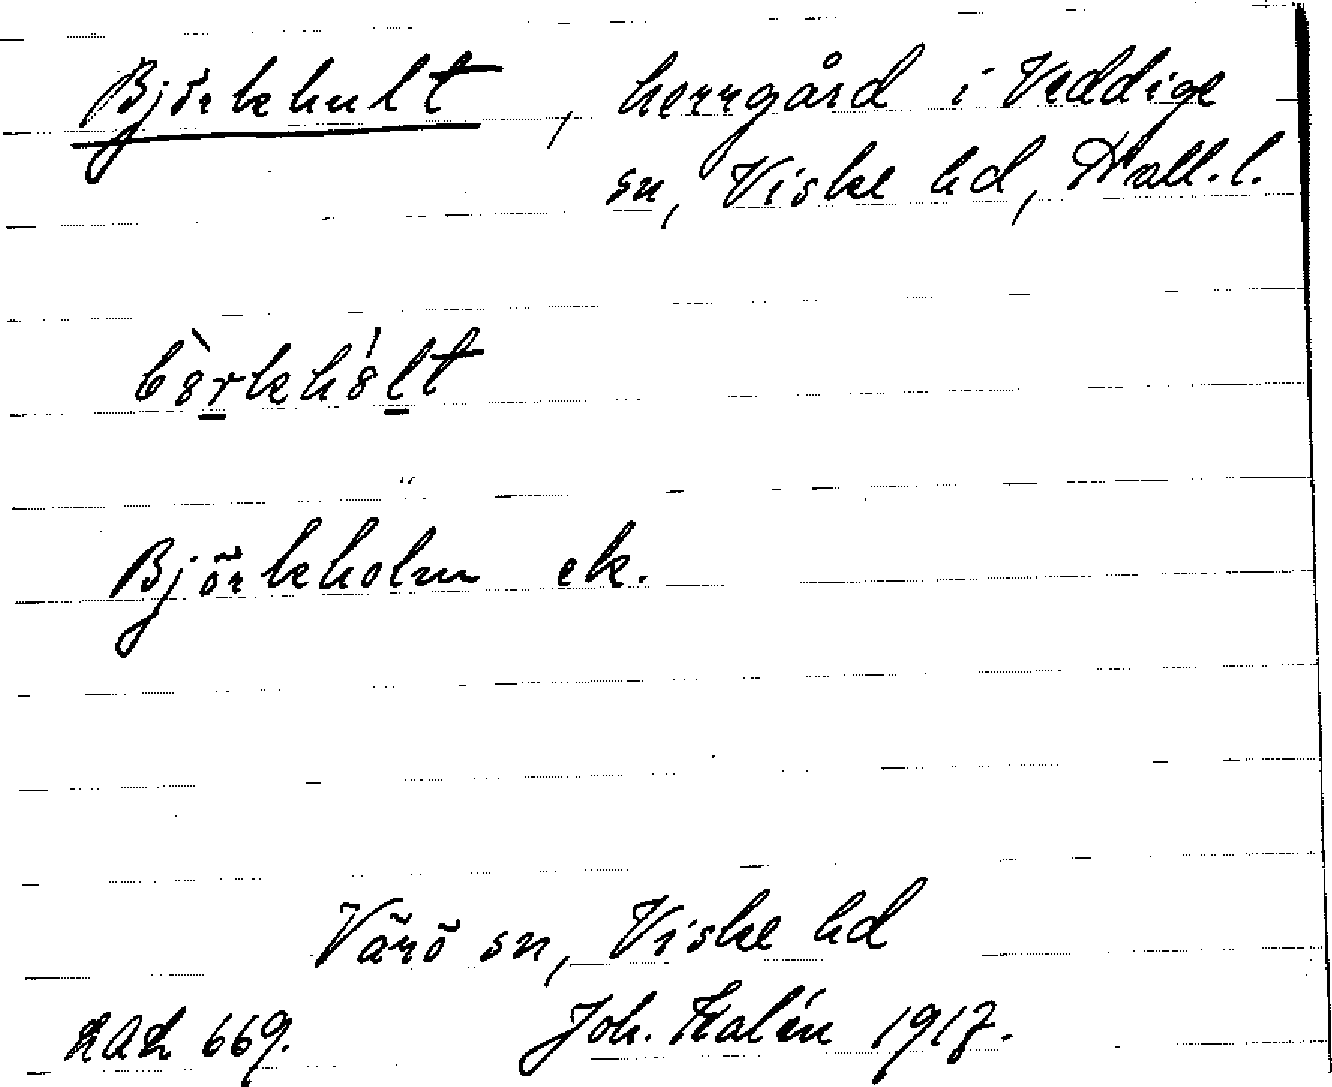 Björkhult, herrgård i Veddige
sn, Viske hd, Hall.l.
Björkholm ek.
Värö sn, Viske hd
669. Joh. Kalén 1917.